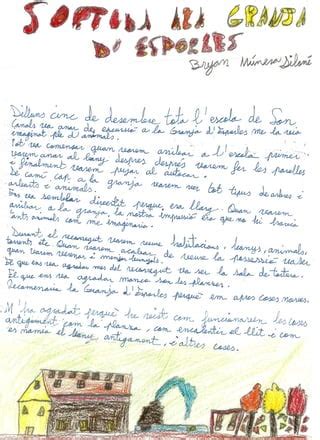 SORTIDA A LA GRANJA
D'ESPORLES
Bryan Múnera
Dilluns cinc de desembre tota l'escola de Son
Canals va anar de excursió a la Granja d'Esporles me la veia
imaginat ple d'animals.
Tot va començar quan varem arribar a l'escola primer
varem anar al bany despres després varem fer les parelles
i finalment varem pujar al autocar.
De camí cap a la granja varem ver tot tipus de arbres i
arbusts i animals.
Em va semblar divertit perquè era llarg. Quan varem
arribar a la granja, la nostra impressió era que no hi havia
tants animals com me imaginava.
Durant el recorregut varem veure habitacions, banys, animals,
torrents etc. Quan varem acabar de veure la possessió
quan varem i menjar bunyols.
El que ens va agradar mes del recorregut va ser la sala de tortura.
El que ens va agradar manco van ser les plantes.
Recomanaria la Granja d'Esporles perquè em apres coses noves.
M'ha agradat perquè he vist com funcionaven les coses
antigament com la planxa, com encalentir el llit i com
es namia el bany, antigament, i altres coses.